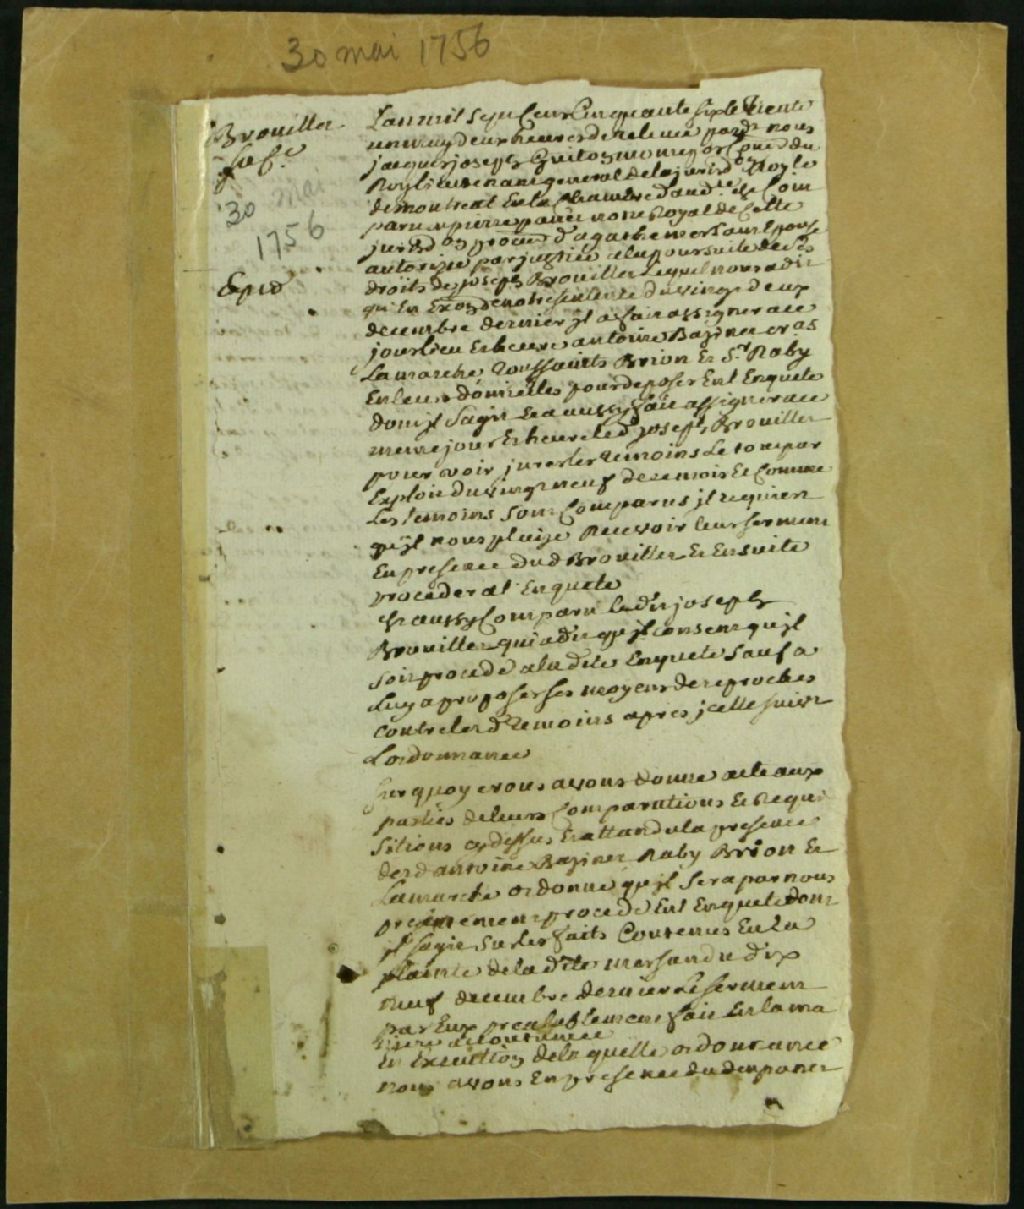 30 mai 1756
Brouillet
30 mai
1756
Exped
L'an mil sept Cens Cinquante six le Trente
un may deux heures de relevée pard.t nous
jacques joseph Guiton monrepos Coner du
Roy lieutenant general de la jurisd.on Royle
de montreal En la Chambre d'aud.ce de
paru pierre panet no.re Royal de Cette
jurisd.on d'agathe mersan Epouse
autorisée par justice a la poursuite de ses
droits de joseph Brouillet Lequel nous a dit
qu'En Exon de notre sentence du vingt deux
decembre dernier jl a fait assigner a ce
jour lieu Et heure antoine Baziner
Lamarche Toussaints Brion Et Sr Raby
En leurs domicilles pour deposer En l Enquete
dont jl sagit Et a aussy fait assigner a ce
meme jour Et heure led joseph Brouillet
pour voir jurer les temoins Le tout par
Exploit du vingt neuf de ce mois Et Comme
Les temoins sont Comparus jl requiert
qu'jl nous plaise Recevoir leur serment
En presence dud Brouillet Et Ensuite
proceder a l Enquete
Et aussy Comparu led.it joseph
Brouillet qui a dit qu'jl consent qu'jl
soit procedé a la dite Enquete Sauf a
Luy a proposer ses moyens de reproches
contre les d. Temoins apres jcelle suivt
L'ordonnance
Surquoy nous avons donné acte aux
parties de leurs Comparutions Et Requi
sitions cydessus Et attandu la presence
desd antoine Baziner Raby Brion Et
Lamarche ordonné qu'jl sera par nous
presentement procedé En l Enquete dont
jl sagit Sur les faits Contenus En la
plainte de la dite mersan du dix
neuf decembre dernier Le serment
par Eux prealablement fait En la ma
niere accoutumée
En Execution de la quelle ordonnance
nous avons En presence dud panet